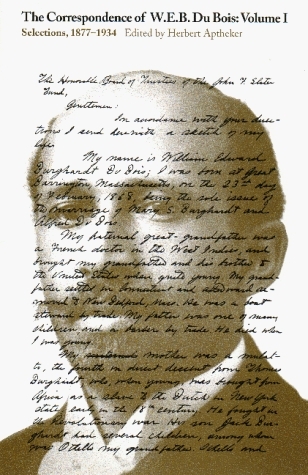 The Correspondence of W.E.B. Du Bois: Volume I
Selections, 1877–1934 Edited by Herbert Aptheker
The Honorable Board of Trustees of the John F. Slater
Fund,
Gentlemen:
In accordance with your direc-
tions I send herewith a sketch of my
life.
My name is William Edward
Burghardt Du Bois; I was born at Great
Barrington, Massachusetts, on the 23rd day
of February, 1868, being the sole issue of
the marriage of Mary S. Burghardt and
Alfred Du Bois.
My paternal great-grandfather was
a French doctor in the West Indies and
brought my grandfather and his brother to
the United States when quite young. My grand-
father settled in Connecticut and afterward
moved to New Bedford, Mass. He was a boat
steward by trade. My father was one of many
children and a barber by trade. He died when
I was young.
My mother was a mulat-
to, the fourth in direct descent from Thomas
Burghardt who, when young, was brought from
Africa as a slave to the Dutch in New York
state early in the 18th century. He fought in
the Revolutionary war. His son Jack Bur-
ghardt had several children, among whom
was Othello my grandfather. Othello and